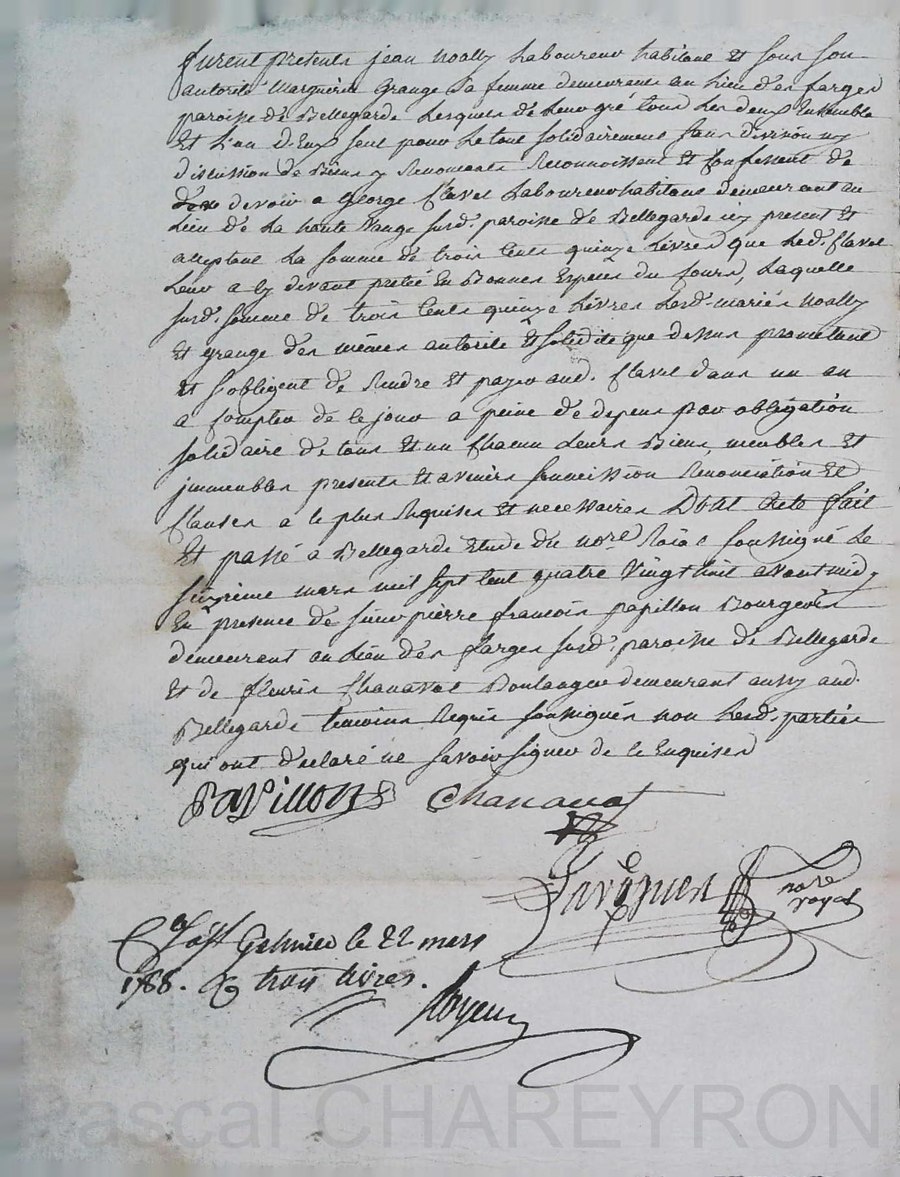 furent presents jean noally Laboureur habitant Et sous son
autorité Marguerite Grange sa femme demeurants au Lieu des farges
paroisse de Bellegarde Lesquels de Leur gré tous Les deux Ensemble
Et L'un d'Eux seul pour Le tout solidairement sans division ny
discussion de Biens y Renonçants Reconnoissent Et Confessent de
devoir a George flavel Laboureur habitant demeurant au
Lieu de La haute susd. paroisse de Bellegarde icy present Et
acceptant La somme de trois Cents quinze Livres que Led. flavel
Leur a cy devant preté En Bonnes Especes du Cours, Laquelle
susd. somme de trois Cents quinze Livres Lesd. mariés noally
Et grange des mêmes autorité Et solidité que dessus promettent
Et s'obligent de Rendre Et payer aud. flavel dans un an
a Compter de Ce jour a peine de depens par obligation
solidaire de tous Et un Chacun Leurs Biens, meubles Et
immeubles presents Et avenirs soumission Renonciation Et
Clauses a Ce plus Requises Et necessaires Dont Acte fait
Et passé a Bellegarde Etude du nore. Roial soussigné Le
mars mil sept Cent quatre Vingt huit avant midy
En presence de sieur pierre francois papillon Bourgeois
demeurant au Lieu des farges susd. paroisse de Bellegarde
Et de fleuris Chanavat Boulanger demeurant aussy aud.
Bellegarde temoins Requis soussignés non Lesd. parties
qui ont declaré ne savoir signer de Ce Enquises
Papillon Chanavat
nore
royal
Galmier le 22 mars
1788. trois livres.
Pascal CHAREYRON